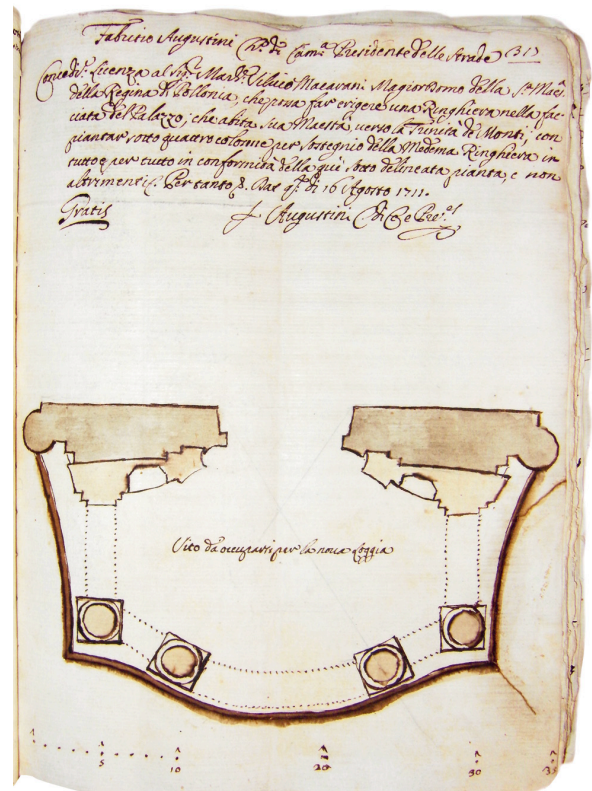 Fabritio Augustini Ch.co di Cam.a Presidente delle Strade 317
Concedi.o Licenza al Sig.r March. Silvio Macarani Magiordomo della S.a Maes.
della Regina di Pollonia, che possa far erigere una Ringhiera nella fac-
ciata del Palazzo, che abita Sua Maestà, verso la Trinità de Monti, con
piantar sotto quattro colonne per sostegno della Medema Ringhiera in
tutto e per tutto in conformità della quì sotto delineata pianta, e non
altrimenti. Per tanto Dat. q. dì 16 Agosto 1711.
Gratis
F. Augustini Ch. di C. e Pre.
Sito da occuparsi per la nova Loggia
5 10 20 30 35